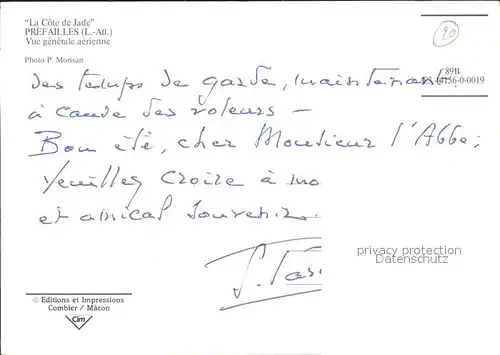 "La Côte de Jade"
PRÉFAILLES (L.-Atl.)
Vue générale aérienne
Photo P. Morisan
20
89B
0156-0-0019
des temps de garde, maintenant
à cause des voleurs —
Bon été, cher Monsieur l'Abbé;
Veuillez croire à mo
et amical souvenir.
privacy protection
Datenschutz
© Editions et Impressions
Combier / Mâcon
Cim